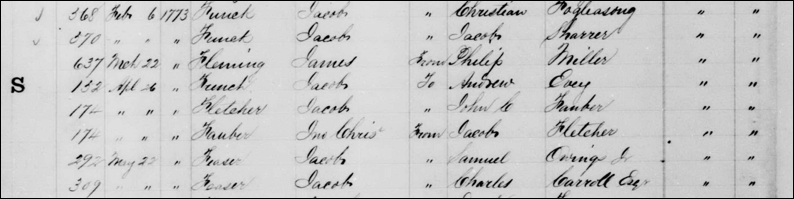 J 368 Feb 6 1773 Funck Jacob " Christian Fogleasong " "
v 370 " " " Funck Jacob " Jacob Sharrer " "
637 Mch 22 " Fleming James From Philip Miller " "
S 132 Apl 26 " Funck Jacob To Andrew " "
174 " " " Fletcher Jacob " John C Fauber " "
174 " " " Fauber Jno Chris From Jacob Fletcher " "
292 May 22 " Fraser Jacob " Samuel Owing Jr " "
309 " " " Fraser Jacob " Charles Carroll Esqr " "